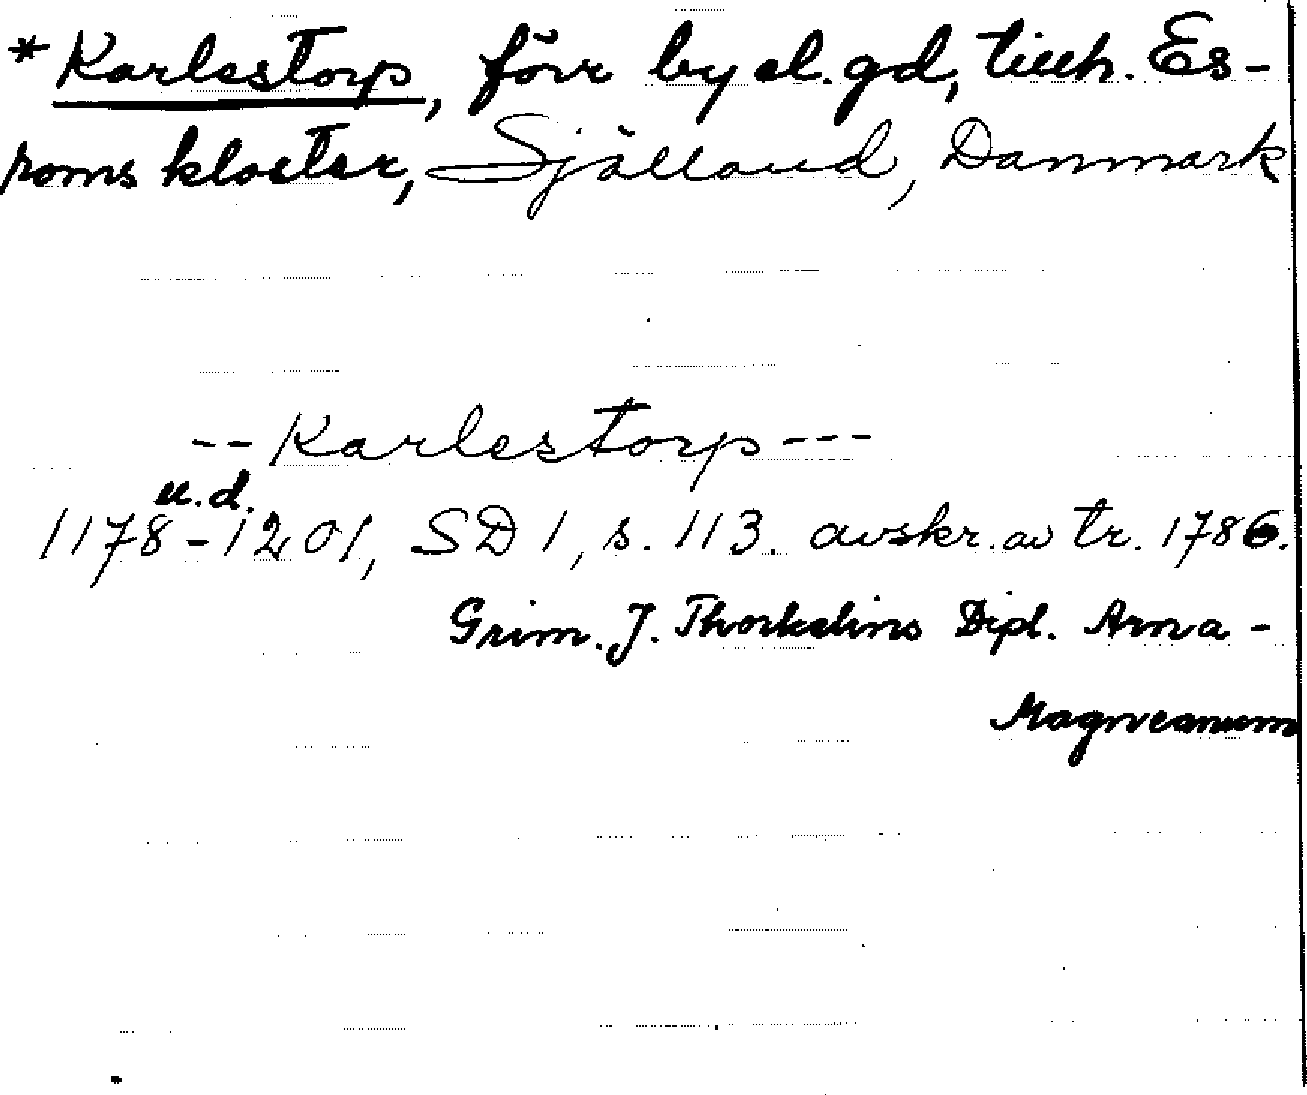 *Karlestorp, förr by el. gd, tillh. Es-
roms kloster, Själland, Danmark
-- Karlestorp ---
u.d.
1178-1201, SD 1, s. 113. avskr. av tr. 1786.
Grim. J. Thorkelins Dipl. Arna-
Magnæanum